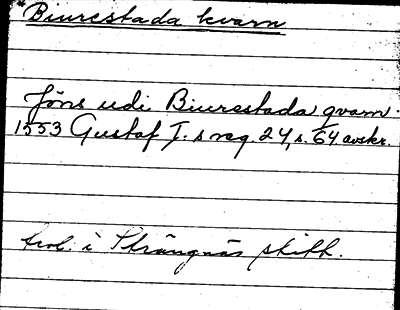 *Biurestada kvarn
Jöns udi Biurestada qvarn.
1553 Gustaf I.s reg. 24, s. 64 avskr.
trol. i Strängnäs skifh.